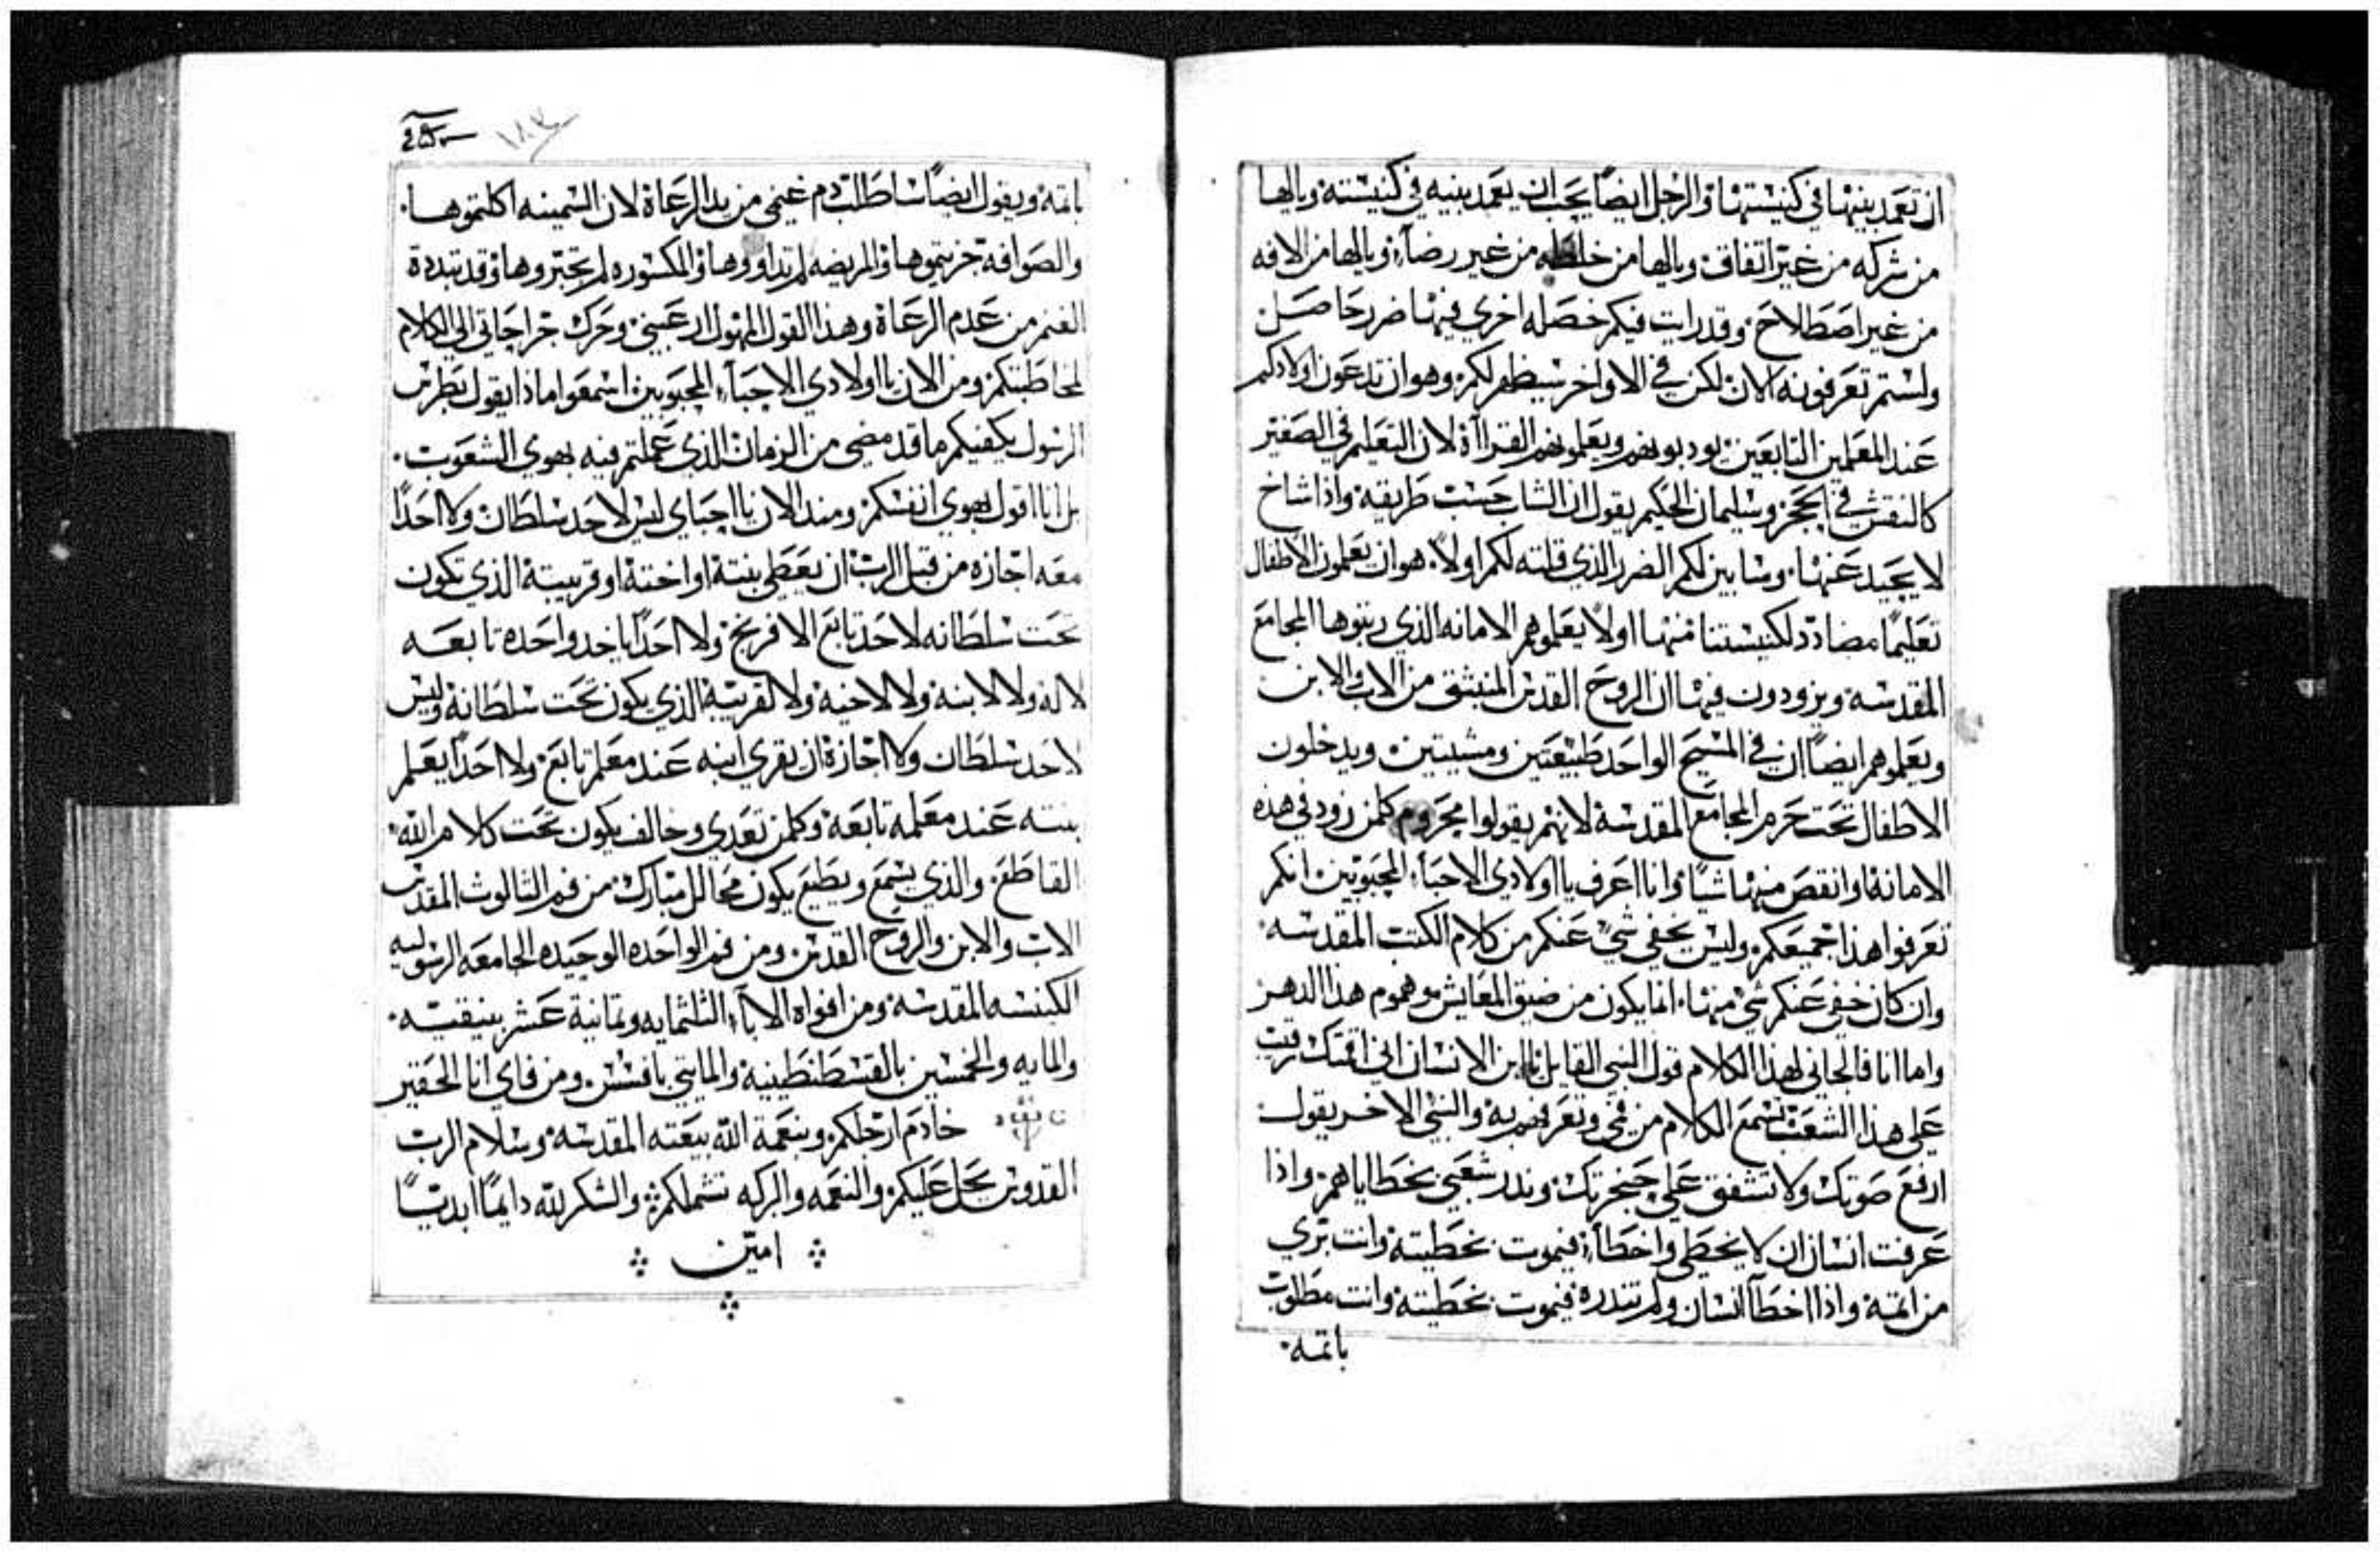 ان تعمد بنيها في كنيستها والرجل ايضاً يجب ان يعمد بنيه في كنيسته ويالها
من شركه من غير اتفاق ويالها من خلطه من غير رضاء ويالها من الافه
من غير اصطلاح وقد رايت فيكم خصله اخري فيها ضرر حاصل
ولستم تعرفونه الان لكن في الاواخر سيظهر لكم وهو ان تدعون اولادكم
عند المعلمين التابعين يودبوبهم ويعلموبهم القراآة لان التعليم في الصغر
كالنقش في الحجر وسليمان الحكيم يقول ان الشاب حسب طريقه واذا شاخ
لا يحيد عنها وسابين لكم الضرر الذي قلته لكم اولاً هو ان يعلمون الاطفال
تعليماً مضادد لكنيستنا منها اولاً يعلموهم الامانه الذي رتبوها المجامع
المقدسه ويزودون فيها ان الروح القدس المنبثق من الاب والابن
ويعلموهم ايضاً ان في المسيح الواحد طبيعتين ومشيتين ويدخلون
الاطفال تحت حرم المجامع المقدسه لانهم يقولوا محروم كلمن زود في هذه
الامانه او انقص منها شياً وانا اعرف يا اولادي الاحباء المحبوبين انكم
تعرفوا هذا جميعكم وليس يخفي شي عنكم من كلام الكتب المقدسه
وان كان خفي عنكم شي منها انما يكون من ضيق المعايش وهموم هذا الدهر
واما انا فالجاني لهذا الكلام قول النبي القايل يا ابن الانسان اني اقمتك رقيب
علي هذا الشعب تسمع الكلام من في وتعرفهم به والنبي الاخر يقول
ارفع صوتك ولا تشفق علي حنجرتك وندر شعبي بخطاياهم واذا
عرفت انسان ان لا يخطي واخطاء فيموت بخطيته وانت بري
من اتمه واذا اخطا انسان ولم تندره فيموت بخطيته وانت مطلوب
باتمه
١٨٣
باتمه ويقول ايضاً ساطلب دم غنمي من يد الرعاة لان السمينه اكلتموها
والصوافه جزيتموها والمريضه لم تداووها والمكسوره لم تجبروها وقد تبددة
الغنم من عدم الرعاة وهذا القول المهول ارعبني وحرك جراحاتي الي الكلام
لمخاطبتكم ومن الان يا اولادي الاحباء المحبوبين اسمعوا ماذا يقول بطرس
الرسول يكفيكم ما قد مضي من الزمان الذي عملتم فيه بهوي الشعوب
بل انا اقول بهوي انفسكم ومند الان يا احباي ليس لاحد سلطان ولا احداً
معه اجازه من قبل الرب ان يعطي بنته او اخته او قريبته الذي تكون
تحت سلطانه لاحد تابع الافرنج ولا احداً ياخد واحده تابعه
لا له ولا لابنه ولا لاخيه ولا لقريبه الذي يكون تحت سلطانه وليس
لاحد سلطان ولا اجازة ان يقري ابنه عند معلم تابع ولا احداً يعلم
بنته عند معلمه تابعه وكلمن تعدي وخالف يكون تحت كلام الله
القاطع والذي يسمع ويطيع يكون محالل مبارك من فم الثالوث المقدس
الاب والابن والروح القدس ومن فم الواحده الوحيده الجامعه الرسوليه
الكنيسه المقدسه ومن افواه الاباء الثلثمايه وثمانية عشر بنيقيه
والمايه والخمسين بالقسطنطينيه والمايتي بافسس ومن فاي انا الحقير
خادم ارجلكم وبنعمة الله بيعته المقدسه وسلام الرب
القدوس يحل عليكم والنعمه والبركه تشملكم والشكر لله دايماً ابدياً
امين